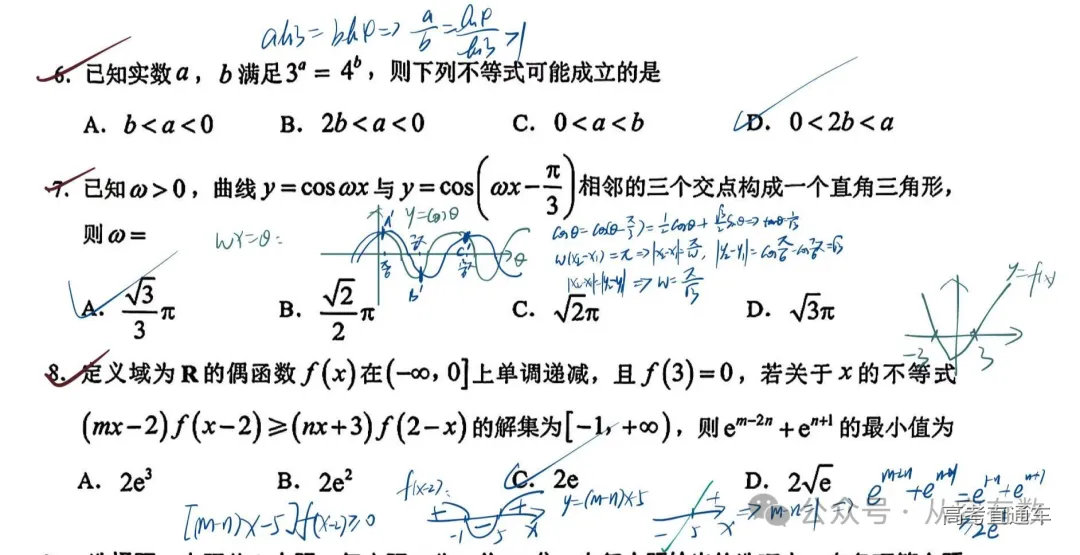 aln3 = bln4 ⇒ a/b = ln4/ln3 > 1
6. 已知实数a，b满足3^a = 4^b，则下列不等式可能成立的是
A. b<a<0 B. 2b<a<0 C. 0<a<b D. 0<2b<a
7. 已知ω>0，曲线y=cosωx与y=cos(ωx-π/3)相邻的三个交点构成一个直角三角形，
则ω= wx=θ: y=cosθ
cosθ=cos(θ-π/3)=1/2cosθ+√3/2sinθ⇒tanθ=1/√3
w(x₂-x₁)=π⇒|x₂-x₁|=π/w, |y₂-y₁|=cosπ/6-cos7π/6=√3
|x₂-x₁|=|y₂-y₁| ⇒ w=π/√3
A' B' C' θ
A. √3/3 π B. √2/2 π C. √2π D. √3π
y=f(x)
-3 3
8. 定义域为R的偶函数f(x)在(-∞, 0]上单调递减，且f(3)=0，若关于x的不等式
(mx-2)f(x-2)≥(nx+3)f(2-x)的解集为[-1, +∞)，则e^(m-2n)+e^(n+1)的最小值为
A. 2e³ B. 2e² C. 2e D. 2√e
[(m-n)x-5]f(x-2)≥0 f(x-2): + - + -1 5 x y=(m-n)x-5 - + 5 x ⇒ m-n=1 ⇒ e^(m-2n)+e^(n+1)=e^(1-n)+e^(n+1)≥2e
公众号·从
高考直通车